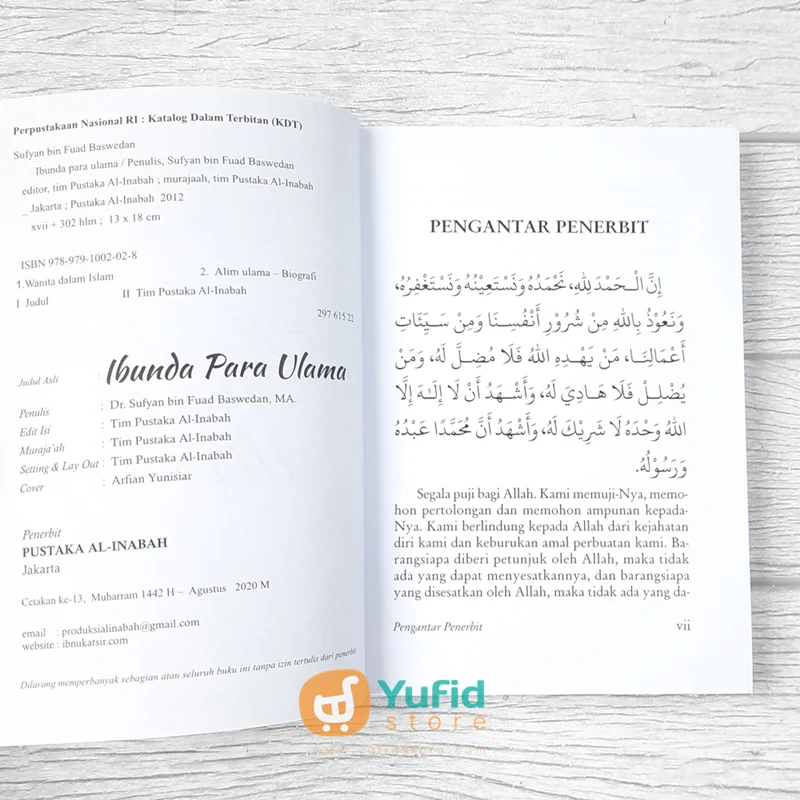 Perpustakaan Nasional RI : Katalog Dalam Terbitan (KDT)
Sufyan bin Fuad Baswedan
Ibunda para ulama / Penulis, Sufyan bin Fuad Baswedan
editor, tim Pustaka Al-Inabah ; murajaah, tim Pustaka Al-Inabah
_ Jakarta ; Pustaka Al-Inabah 2012
xvii + 302 hlm ; 13 x 18 cm
ISBN 978-979-1002-02-8
1.Wanita dalam Islam 2. Alim ulama – Biografi
I Judul II Tim Pustaka Al-Inabah
297 615 22
Judul Asli : Ibunda Para Ulama
Penulis : Dr. Sufyan bin Fuad Baswedan, MA.
Edit Isi : Tim Pustaka Al-Inabah
Muraja'ah : Tim Pustaka Al-Inabah
Setting & Lay Out : Tim Pustaka Al-Inabah
Cover : Arfian Yunisiar
Penerbit
PUSTAKA AL-INABAH
Jakarta
Cetakan ke-13, Muharram 1442 H – Agustus 2020 M
email : produksialinabah@gmail.com
website : ibnukatsir.com
Dilarang memperbanyak sebagian atau seluruh buku ini tanpa izin tertulis dari penerbit
PENGANTAR PENERBIT
إِنَّ الْـحَمْدَ لِلهِ، نَحْمَدُهُ وَنَسْتَعِيْنُهُ وَنَسْتَغْفِرُهُ،
وَنَعُوْذُ بِاللهِ مِنْ شُرُوْرِ أَنْفُسِنَا وَمِنْ سَيِّئَاتِ
أَعْمَالِنَا، مَنْ يَهْدِهِ اللهُ فَلَا مُضِلَّ لَهُ، وَمَنْ
يُضْلِلْ فَلَا هَادِيَ لَهُ، وَأَشْهَدُ أَنْ لَا إِلَـٰهَ إِلَّا
اللهُ وَحْدَهُ لَا شَرِيْكَ لَهُ، وَأَشْهَدُ أَنَّ مُحَمَّدًا عَبْدُهُ
وَرَسُوْلُهُ.
Segala puji bagi Allah. Kami memuji-Nya, memo-
hon pertolongan dan memohon ampunan kepada-
Nya. Kami berlindung kepada Allah dari kejahatan
diri kami dan keburukan amal perbuatan kami. Ba-
rangsiapa diberi petunjuk oleh Allah, maka tidak
ada yang dapat menyesatkannya, dan barangsiapa
yang disesatkan oleh Allah, maka tidak ada yang da-
Pengantar Penerbit vii
Yufid
store
www.yufidstore.com